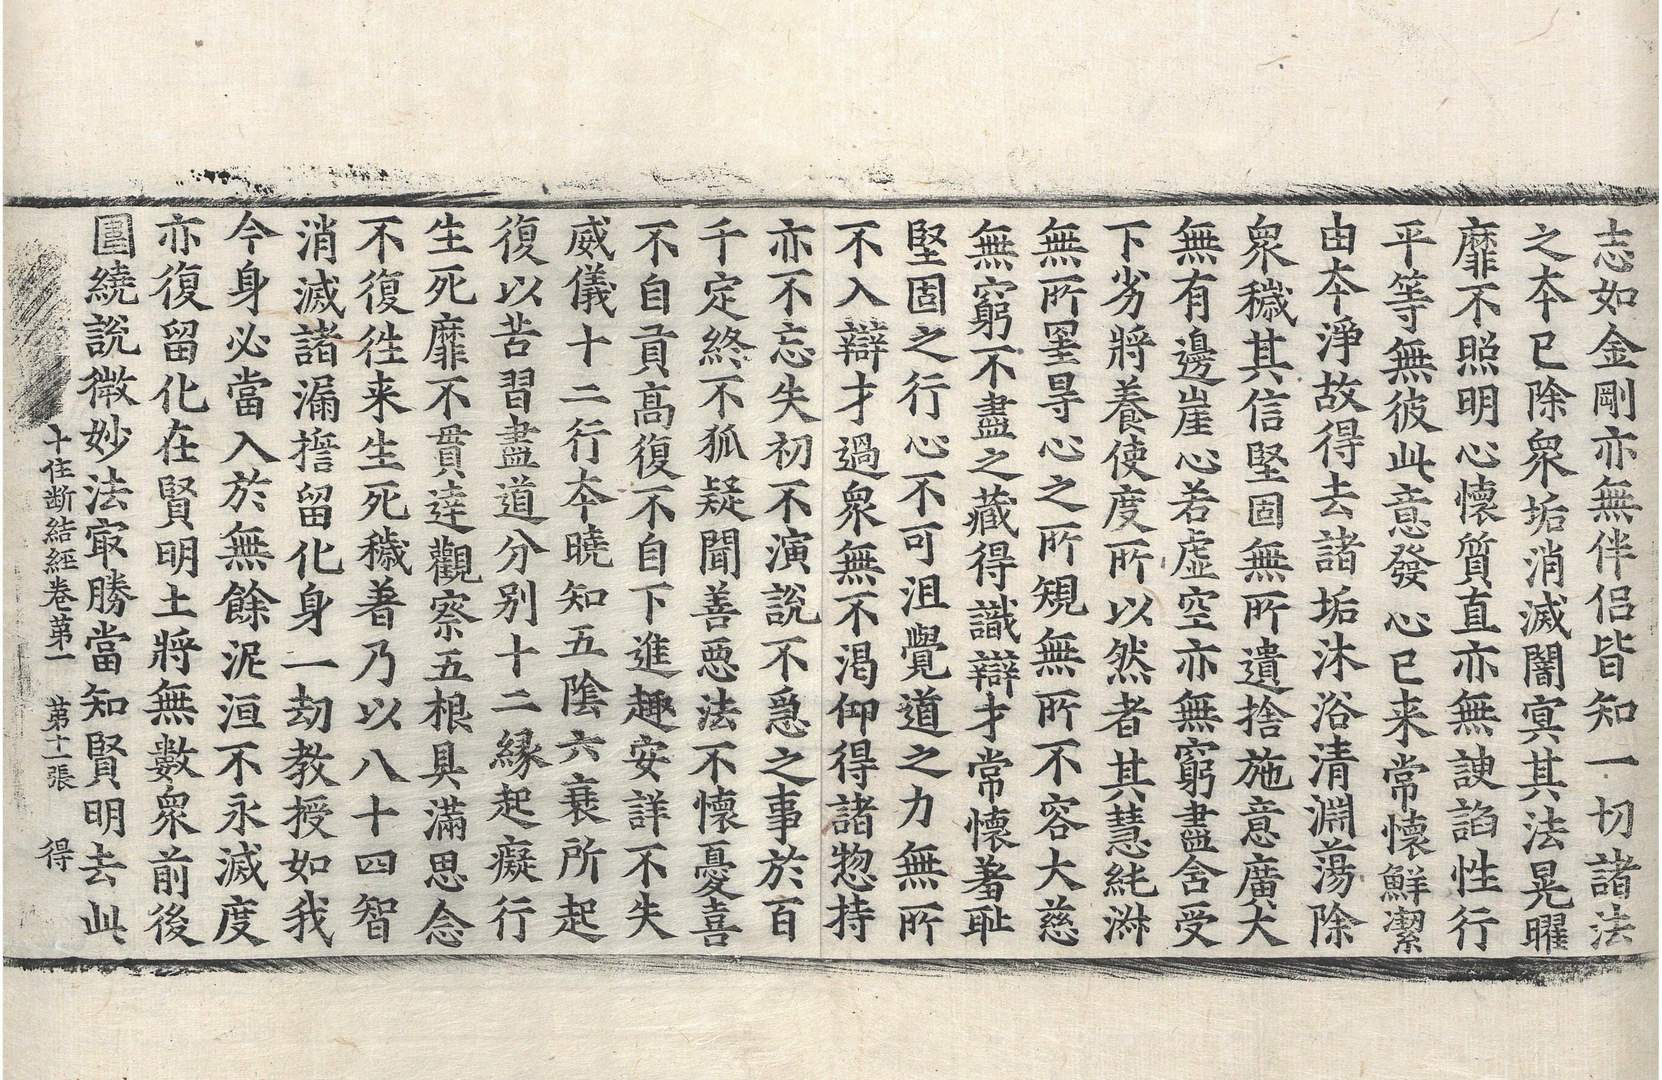 志如金剛亦無伴侶皆知一切諸法
之夲已除衆垢消滅闇㝠其法晃曜
靡不照明心懷質直亦無諛諂性行
平等無彼此意發心已来常懷鮮潔
由夲淨故得去諸垢沐浴清淵蕩除
衆穢其信堅固無所遺捨施意廣大
無有邊崖心若虛空亦無窮盡舍受
下劣將養使度所以然者其慧純淋
無所罣㝵心之所規無所不容大慈
無窮不盡之藏得識辯才常懷羞耻
堅固之行心不可沮覺道之力無所
不入辯才過衆無不渴仰得諸惣持
亦不忘失初不演說不急之事於百
千定終不狐疑聞善惡法不懷憂喜
不自貢高復不自下進趣安詳不失
威儀十二行夲曉知五陰六衰所起
復以苦習盡道分别十二縁起癡行
生死靡不貫達觀察五根具滿思念
不復徃来生死穢著乃以八十四智
消滅諸漏擔留化身一劫教授如我
今身必當入於無餘泥洹不永滅度
亦復留化在賢明土將無數衆前後
圍繞說微妙法㝡勝當知賢明去此
十住断結經卷第一 第十一張 得